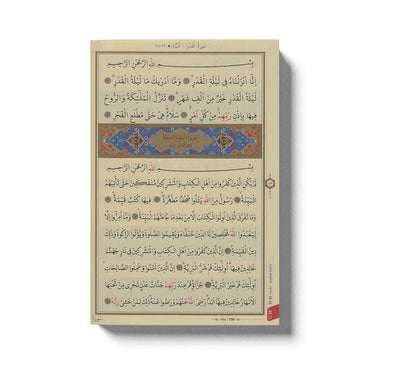 سُورَةُ الْقَدْرِ - الْبَيِّنَة
بِسْمِ اللهِ الرَّحْمٰنِ الرَّحِيمِ
إِنَّا أَنْزَلْنَاهُ فِي لَيْلَةِ الْقَدْرِ ۝ وَمَا أَدْرٰيكَ مَا لَيْلَةُ الْقَدْرِ ۝
لَيْلَةُ الْقَدْرِ خَيْرٌ مِنْ أَلْفِ شَهْرٍ ۝ تَنَزَّلُ الْمَلٰئِكَةُ وَالرُّوحُ
فِيهَا بِإِذْنِ رَبِّهِمْ مِنْ كُلِّ أَمْرٍ ۝ سَلَامٌ هِيَ حَتّٰى مَطْلَعِ الْفَجْرِ ۝
سُورَةُ الْبَيِّنَةِ
بِسْمِ اللهِ الرَّحْمٰنِ الرَّحِيمِ
لَمْ يَكُنِ الَّذِينَ كَفَرُوا مِنْ أَهْلِ الْكِتَابِ وَالْمُشْرِكِينَ مُنْفَكِّينَ حَتّٰى تَأْتِيَهُمُ
الْبَيِّنَةُ ۝ رَسُولٌ مِنَ اللهِ يَتْلُوا صُحُفًا مُطَهَّرَةً ۝ فِيهَا كُتُبٌ قَيِّمَةٌ ۝
وَمَا تَفَرَّقَ الَّذِينَ أُوتُوا الْكِتَابَ إِلَّا مِنْ بَعْدِ مَا جَاءَتْهُمُ الْبَيِّنَةُ ۝
وَمَا أُمِرُوا إِلَّا لِيَعْبُدُوا اللهَ مُخْلِصِينَ لَهُ الدِّينَ حُنَفَاءَ وَيُقِيمُوا الصَّلٰوةَ وَيُؤْتُوا الزَّكٰوةَ وَذٰلِكَ
دِينُ الْقَيِّمَةِ ۝ إِنَّ الَّذِينَ كَفَرُوا مِنْ أَهْلِ الْكِتَابِ وَالْمُشْرِكِينَ فِي نَارِ جَهَنَّمَ
خَالِدِينَ فِيهَا أُولٰئِكَ هُمْ شَرُّ الْبَرِيَّةِ ۝ إِنَّ الَّذِينَ آمَنُوا وَعَمِلُوا الصَّالِحَاتِ
أُولٰئِكَ هُمْ خَيْرُ الْبَرِيَّةِ ۝ جَزَاؤُهُمْ عِنْدَ رَبِّهِمْ جَنَّاتُ عَدْنٍ تَجْرِي مِنْ تَحْتِهَا
الْأَنْهَارُ خَالِدِينَ فِيهَا أَبَدًا رَضِيَ اللهُ عَنْهُمْ وَرَضُوا عَنْهُ ذٰلِكَ لِمَنْ خَشِيَ رَبَّهُ ۝